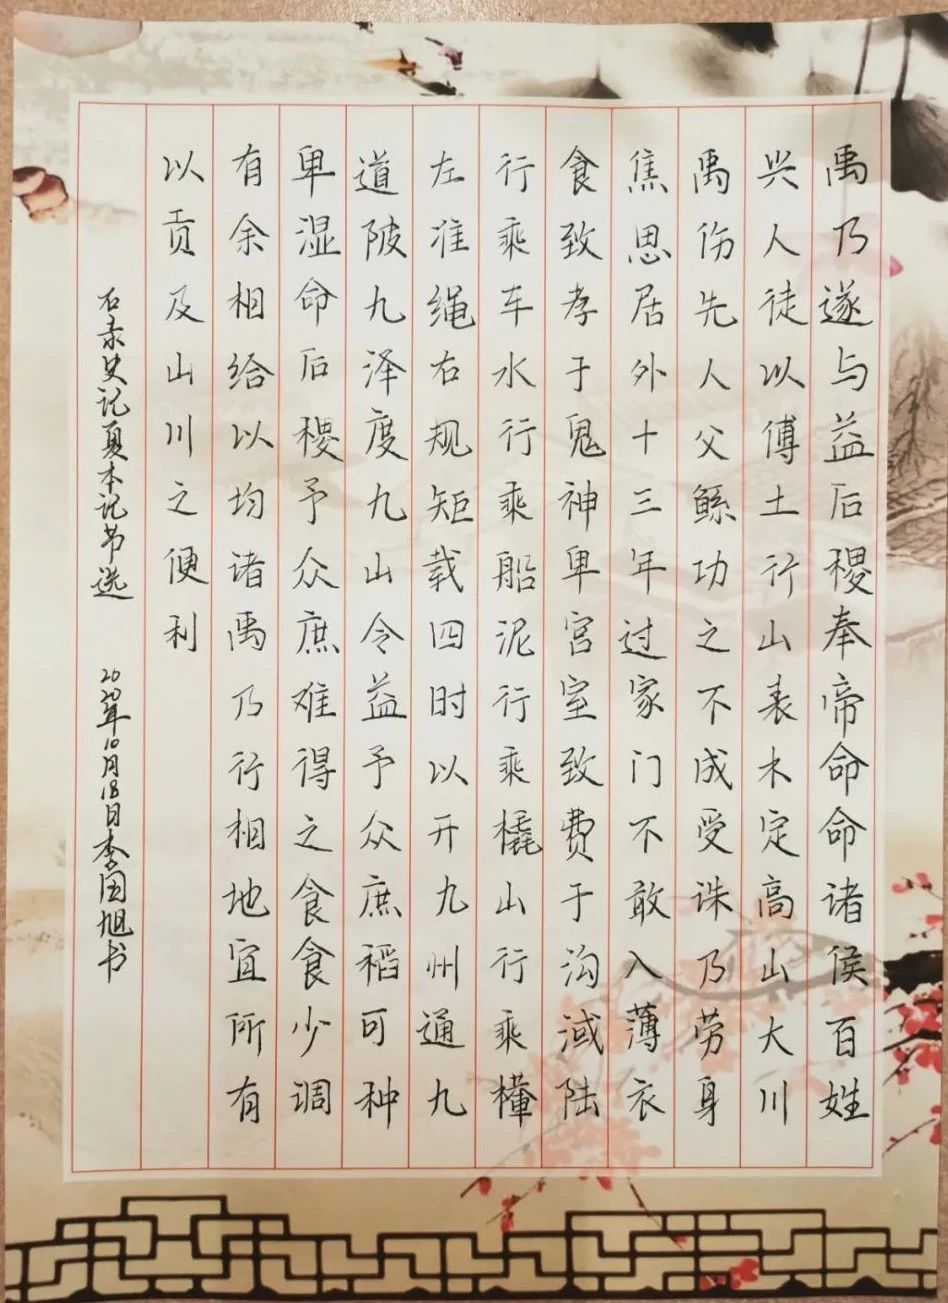 禹乃遂与益后稷奉帝命命诸侯百姓
兴人徒以傅土行山表木定高山大川
禹伤先人父鲧功之不成受诛乃劳身
焦思居外十三年过家门不敢入薄衣
食致孝于鬼神卑宫室致费于沟淢陆
行乘车水行乘船泥行乘橇山行乘檋
左准绳右规矩载四时以开九州通九
道陂九泽度九山令益予众庶稻可种
卑湿命后稷予众庶难得之食食少调
有余相给以均诸禹乃行相地宜所有
以贡及山川之便利
右录史记夏本记节选 10月18日李国旭书